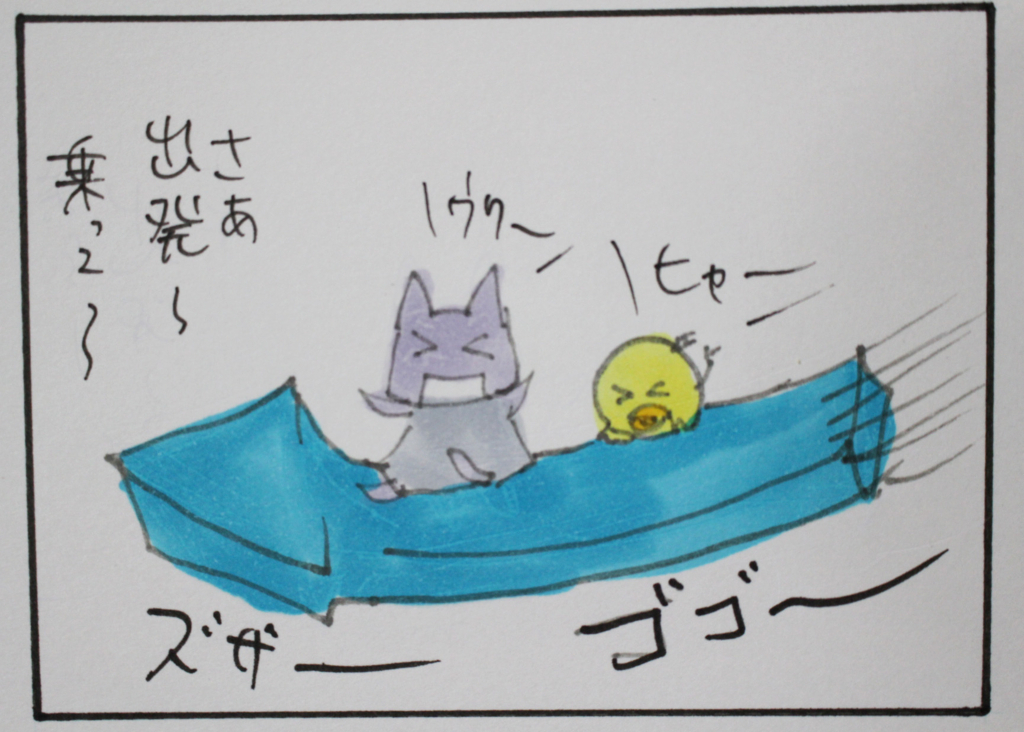 さあ
出発〜
乗って〜
ウワー
ヒャー
ズザー
ゴゴー